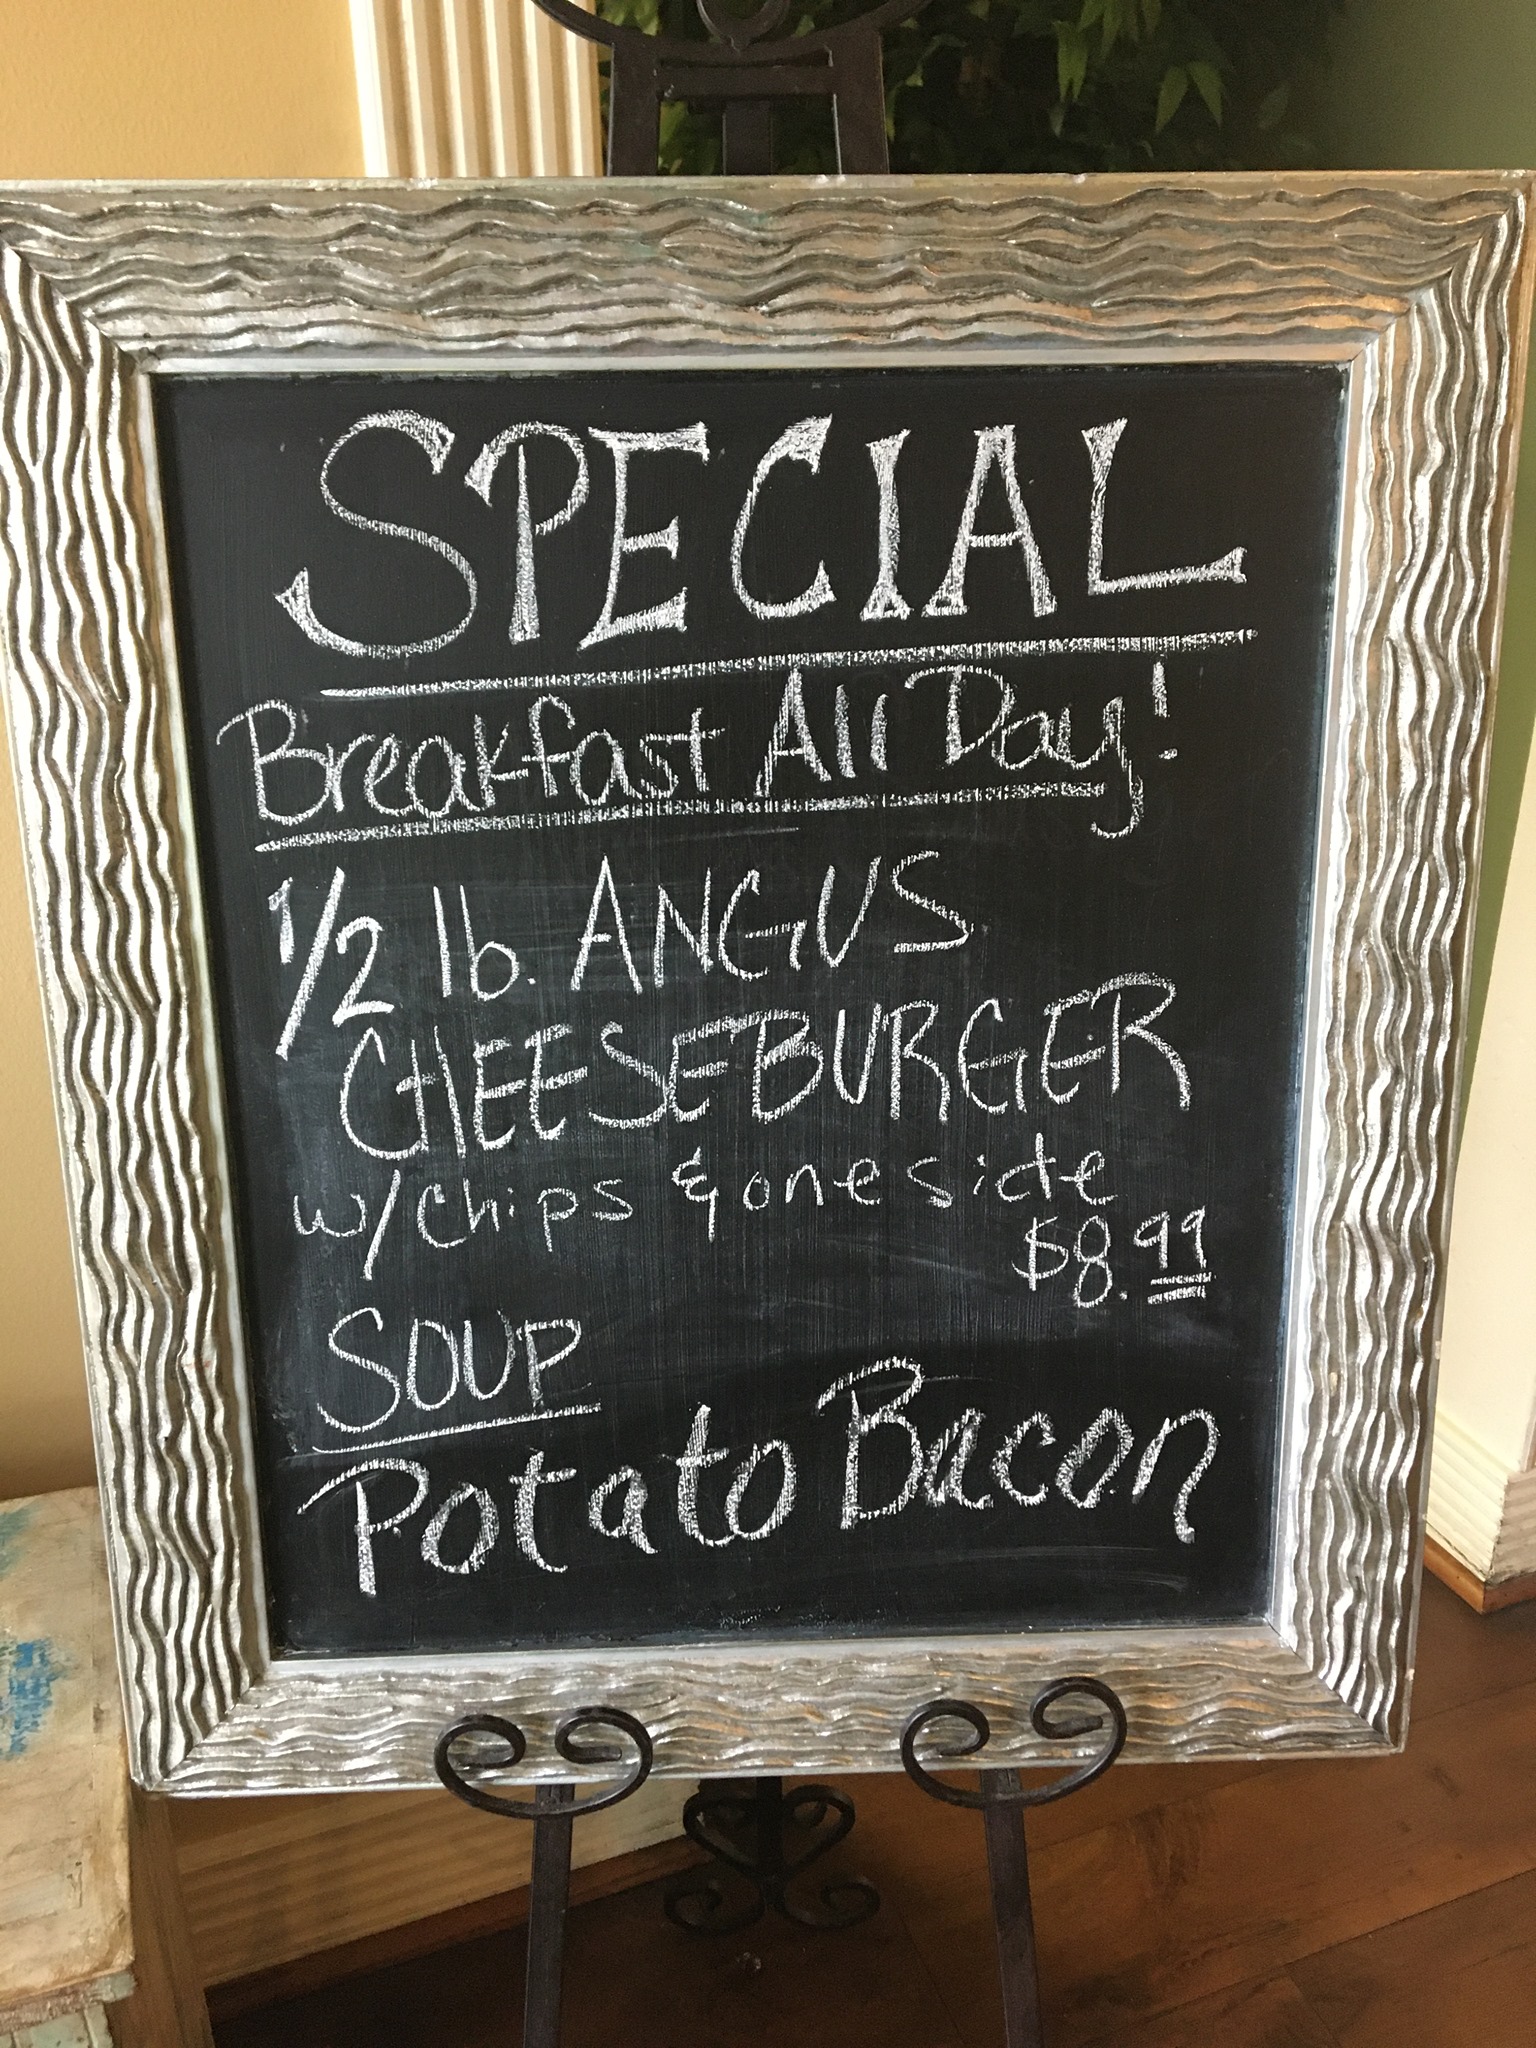 SPECIAL
Breakfast All Day!
1/2 lb. ANGUS
CHEESEBURGER
w/chips & one side
$8.99
SOUP
Potato Bacon